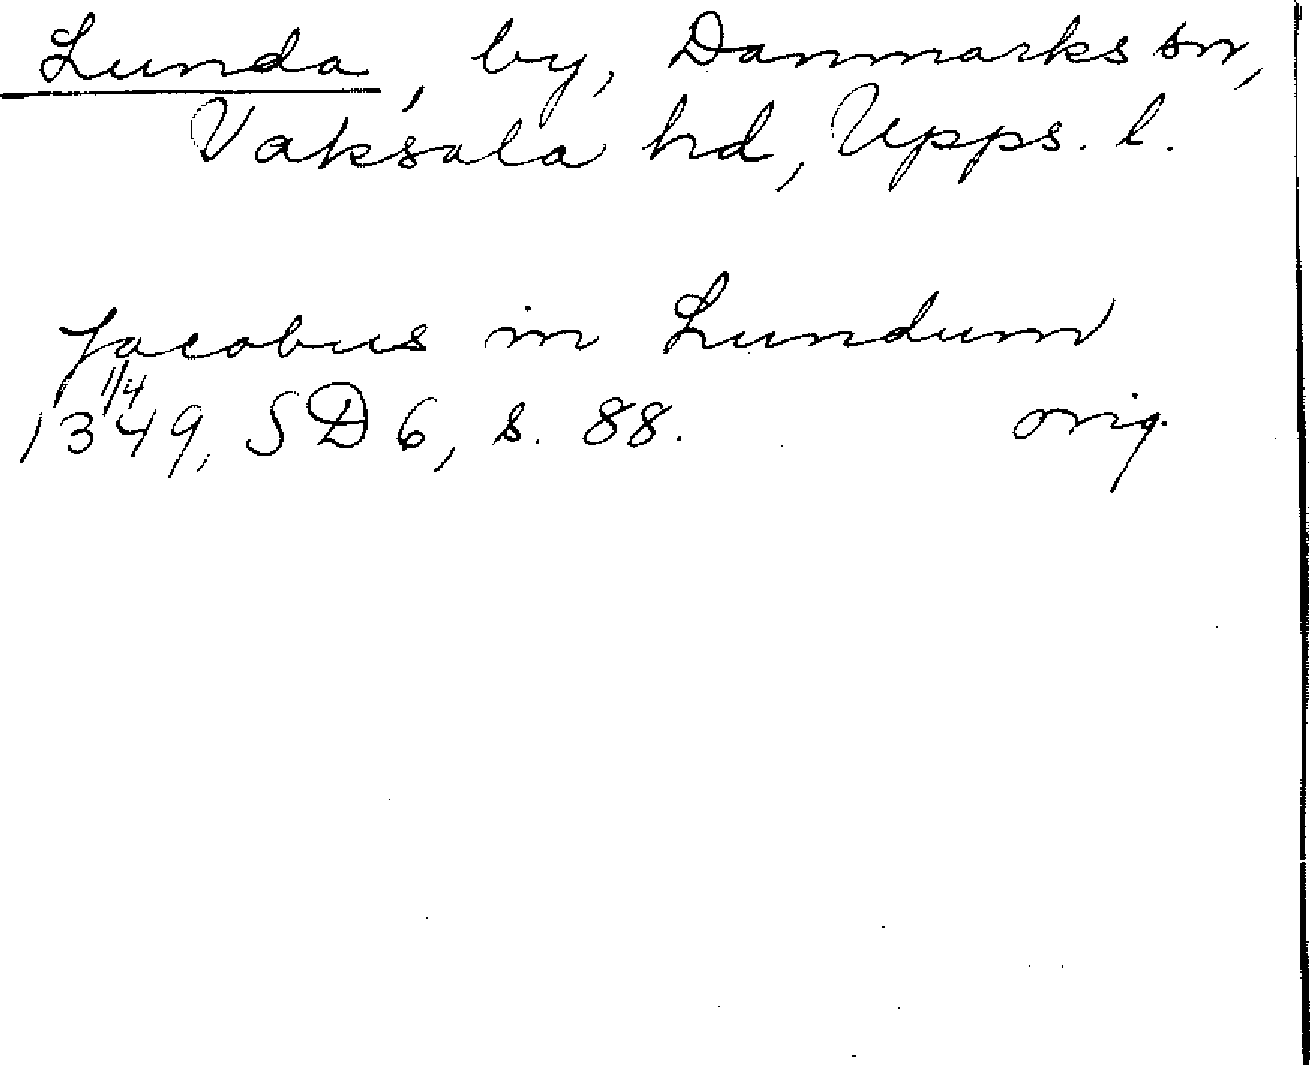 Lunda, by, Danmarks sn,
Vaksala hd, Upps. l.
Jacobus in Lundum
1/4
1349, SD 6, s. 88. orig.